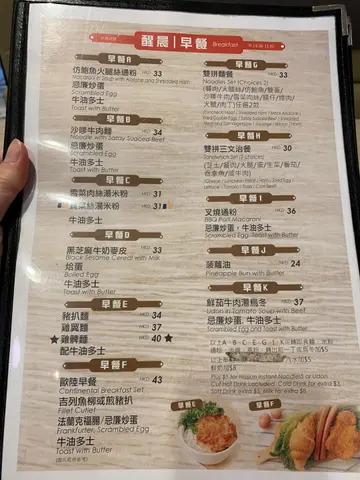 醒晨|早餐 Breakfast
早餐A
仿鮑魚火腿絲通粉 HKD 33
Macaroni in Soup with Abalone and Shredded Ham
忌廉炒蛋
Scrambled Egg
牛油多士
Toast with Butter
早餐B
沙嗲牛肉麵 HKD 34
Noodle with Satay Sauced Beef
忌廉炒蛋
Scrambled Egg
牛油多士
Toast with Butter
早餐C
雪菜肉絲湯米粉 HKD 31
菜絲湯米粉 HKD 31
牛油多士
Toast with Butter
早餐D
黑芝麻牛奶麥皮 HKD 33
Black Sesame Cereal with Milk
烚蛋
Boiled Egg
牛油多士
Toast with Butter
早餐E
豬扒麵 HKD 34
雞翼麵 HKD 37
★雞髀麵 HKD 40★
配牛油多士
早餐F
歐陸早餐 HKD 43
Continental Breakfast Set
吉列魚柳或煎豬扒
Fillet Cutlet
法蘭克福腸/忌廉炒蛋
Frankfurter, Scrambled Egg
牛油多士
Toast with Butter
早餐G
雙拼麵餐 HKD 33
Noodles Set (Choices 2)
早餐H
雙拼三文治餐 HKD 30
Sandwich Set (2 choices)
(芝士/餐肉/火腿/蛋/生菜/番茄/
吞拿魚/咸牛肉)
早餐I
叉燒通粉 HKD 36
BBQ Pork Macaroni
忌廉炒蛋,牛油多士
Scrambled Egg, Toast with Butter
早餐J
菠蘿油 HKD 24
Pineapple Bun with Butter
早餐K
鮮茄牛肉湯烏冬 HKD 37
Udon in Tomato Soup with Beef
忌廉炒蛋,牛油多士
Scrambled Egg and Toast with Butter
早餐E
早餐F